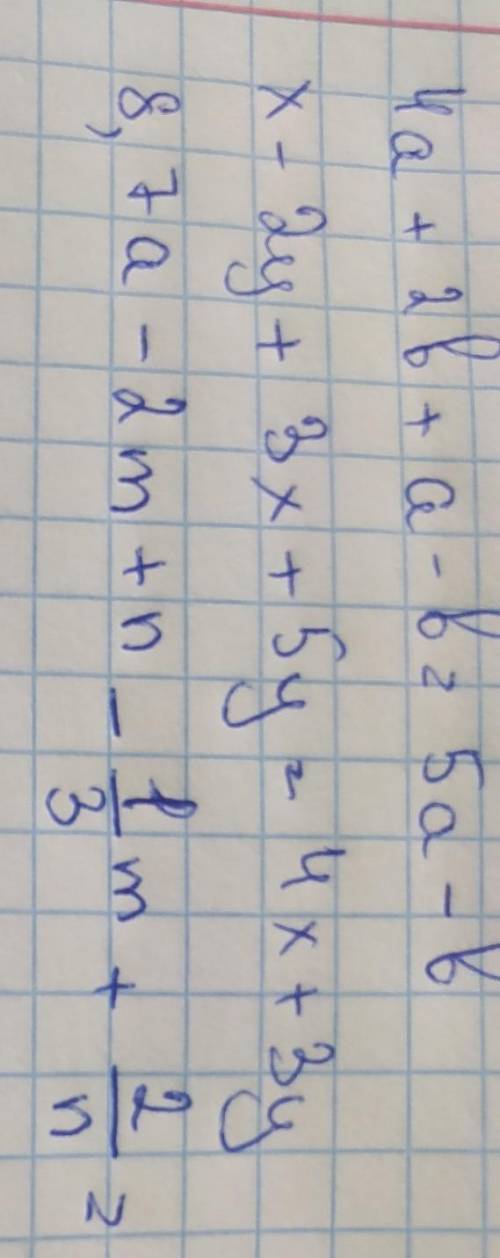 4a + 2b + a - b = 5a - b
x - 2y + 3x + 5y = 4x + 3y
8,7a - 2m + n - 1/3 m + 2/n =